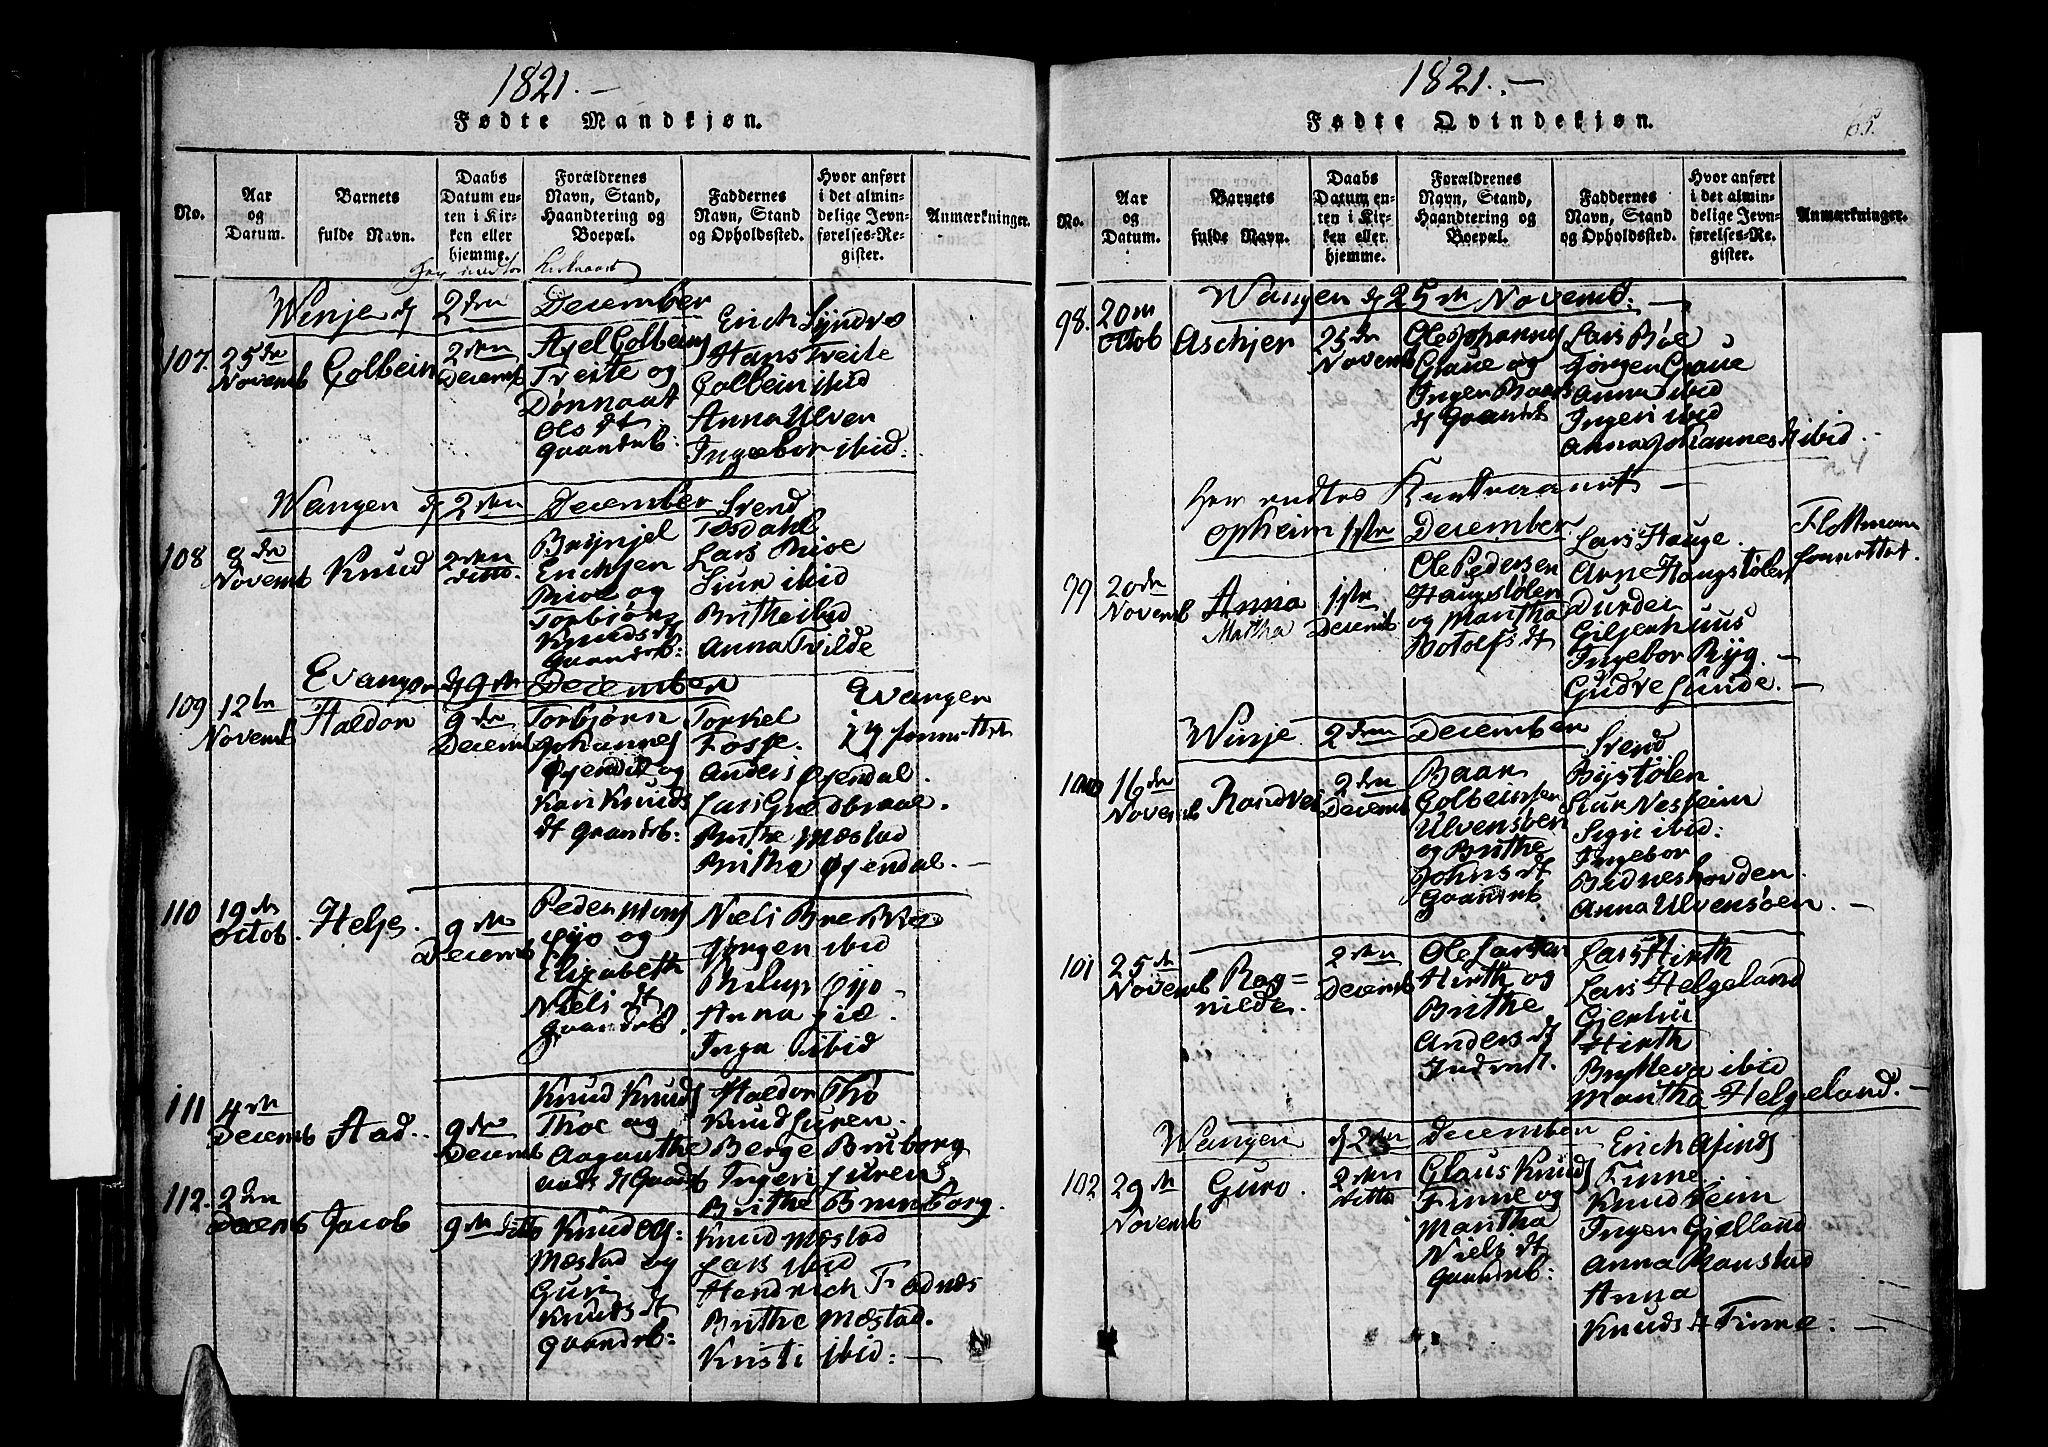 1821.-
Fødte Mandkjøn.
No.
Aar
og
Datum.
Barnets
fulde Navn.
Daabs
Datum en-
ten i Kir-
ken eller
hjemme.
Forældrenes
Navn, Stand,
Haandtering og
Boepæl.
Faddernes
Navn, Stand
og Opholdssted.
Hvor anført
i det almin-
delige Jevn-
førelses-Re-
gister.
Anmærkninger.
Winje d 2den December
107. 25de
Novemb
Colbein
2den
Decemb
Axel Colbeins
Treite og
Ols dt
Gaardrb:
Erich Lyndve
Hans Treite
Colbein ibid
Anna Ulven
Ingebor ibid.
Wangen d 2den December
108
8de
Novemb
Knud
2den
ditto.
Brynjel
Erichsen
Mioe og
Torbjørg
Knuds dt
Gaardrb:
Svend
Tøsdahl
Lars Mioe
Siur ibid
Brithe ibid
Anna Tvilde
Evanger d 9de December
109
12te
Novemb
Haldor
9de
Decemb
Torbjørn
Johannes
Øjendal og
Kari Knuds
dt Gaardrb:
Torkel
Fosse.
Anders Øjendal.
Lars Grædbraae.
Brithe Mæstad
Britha Øjendal.
Evanger
110
19de
Octob.
Helje.
9de
Decemb
Peder Mons
Øjo og
Elizabeth
Niels dt
Gaardrb.
Niels Brekke
Jørgen ibid
Øjo
Anna ibid.
Inga ibid
111
4de
Decemb
Aad..
9de
Decemb
Knud Knuds
Thoe og
Aaganthe
Aads dt Gaardrb
Haldor Tho
Knud Furen.
Berge Bruborg
Ingeri Furen
Brithe Brunborg.
112.
2den
Decemb
Jacob
9de ditto
Knud Ols:
Mæstad og
Guri
Knuds dt
Gaardrb:
Knud Mæstad
Lars ibid
Hendrich Fadnæs
Brithe Mæstad.
Kristi ibid:
1821.-
65.
Fødte Qvindekjøn.
No.
Aar
og
Datum.
Barnets
fulde Navn.
Daabs
Datum en-
ten i Kir-
ken eller
hjemme.
Forældrenes
Navn, Stand,
Haandtering og
Boepæl.
Faddernes
Navn, Stand
og Opholdssted.
Hvor anført
i det almin-
delige Jevn-
førelses-Re-
gister.
Anmærkninger.
Wangen d 25de Novemb:
98.
20de
Octob
Aschjer
25de
Novemb
Ole Johannes
Graue og
Inger Baars
dt Gaardrb
Lars Bøe
Jørgen Graue
Anna ibid
Ingeri ibid
Anna Johannes dt ibid.
Opheim 1ste December
99
20de
Novemb
Anna
Martha
1ste
Decemb
Ole Pedersen
Haugstølen
og Martha
Botolfs dt
Lars Hauge.
Arne Haugstølen
Durdei
Giljerhuus
Ingebor Ryg.
Gudve Sunde.
Winje 2den December
100
16de
Novemb
Randvei
2den
Decemb
Baar
Colbeinsen
Ulvensøen
og Brithe
Johns dt
Gaardrb
Svend
Bystølen
Siur Nesheim
Sigri ibid:
Ingebor
Bidneshovden.
Anna Ulvensøen.
101
25de
Novemb
Rag=
nilde.
2den
Decemb
Ole Larsen
Hirth og
Brithe
Anders dt
Inderst.
Lars Hirth
Lars Helgeland
Gjerthu
Hirth
Brytteva ibid
Martha Helgeland.
Wangen d 2den December
102
29de
Novemb
Guro.
2den
ditto
Claus Knuds
Finne og
Martha
Niels dt
Gaardrb:
Erich Asinds
Finne
Knud Seim
Inger Gjelland
Anna Ronstad
Anna
Knuds dt Finne.